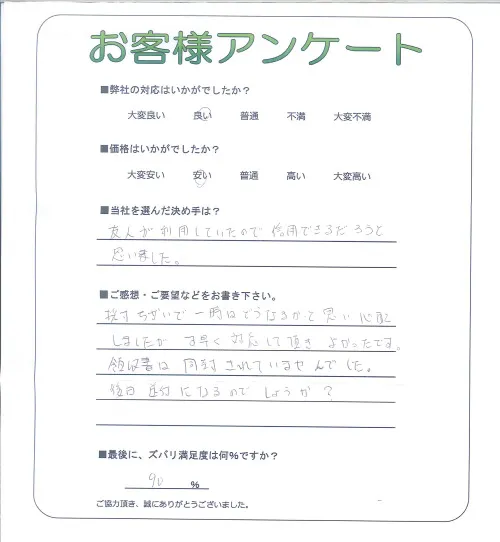 お客様アンケート
■弊社の対応はいかがでしたか？
大変良い 良い 普通 不満 大変不満
■価格はいかがでしたか？
大変安い 安い 普通 高い 大変高い
■当社を選んだ決め手は？
友人が利用していたので信用できるだろうと
思いました。
■ご感想・ご要望などをお書き下さい。
ちがいで一時はどうなるかって思い心配
しましたが す早く対応して頂き よかったです。
領収書は同封されていませんでした。
後日 送付になるのでしょうか？
■最後に、ズバリ満足度は何%ですか？
90 %
ご協力頂き、誠にありがとうございました。